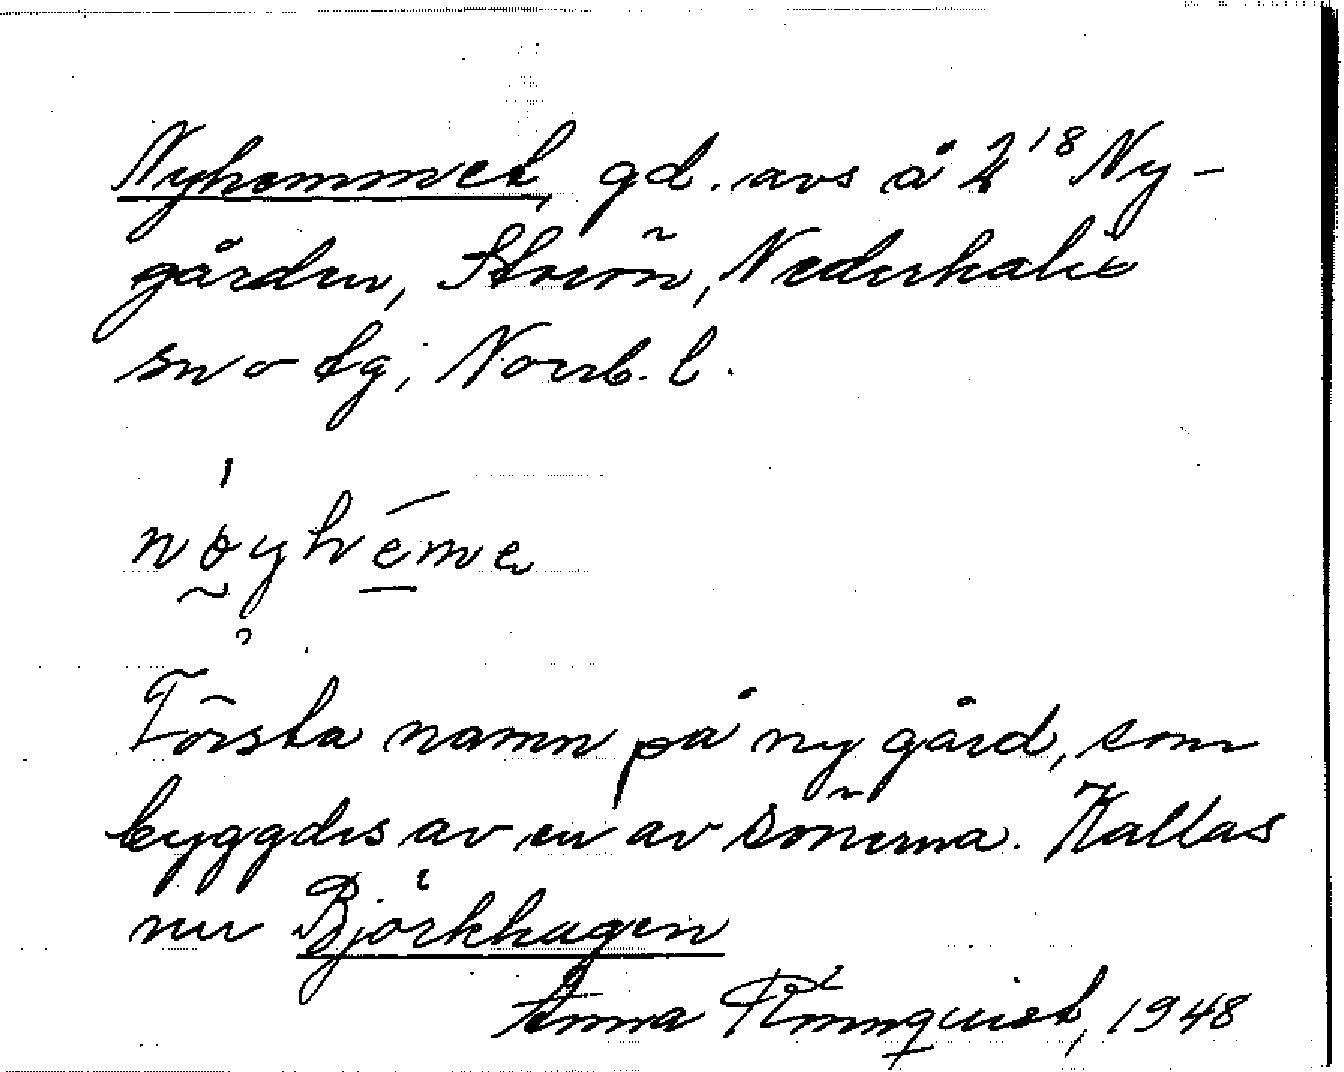 Nyhemmet, gd. avs å 2¹⁸ Ny-
gården, Storön, Nederkalix
sn o tg, Norrb. l.
nøyhéme
Första namn på ny gård, som
byggdes av en av sönerna. Kallas
nu Björkhagen
Anna Rönnquist, 1948